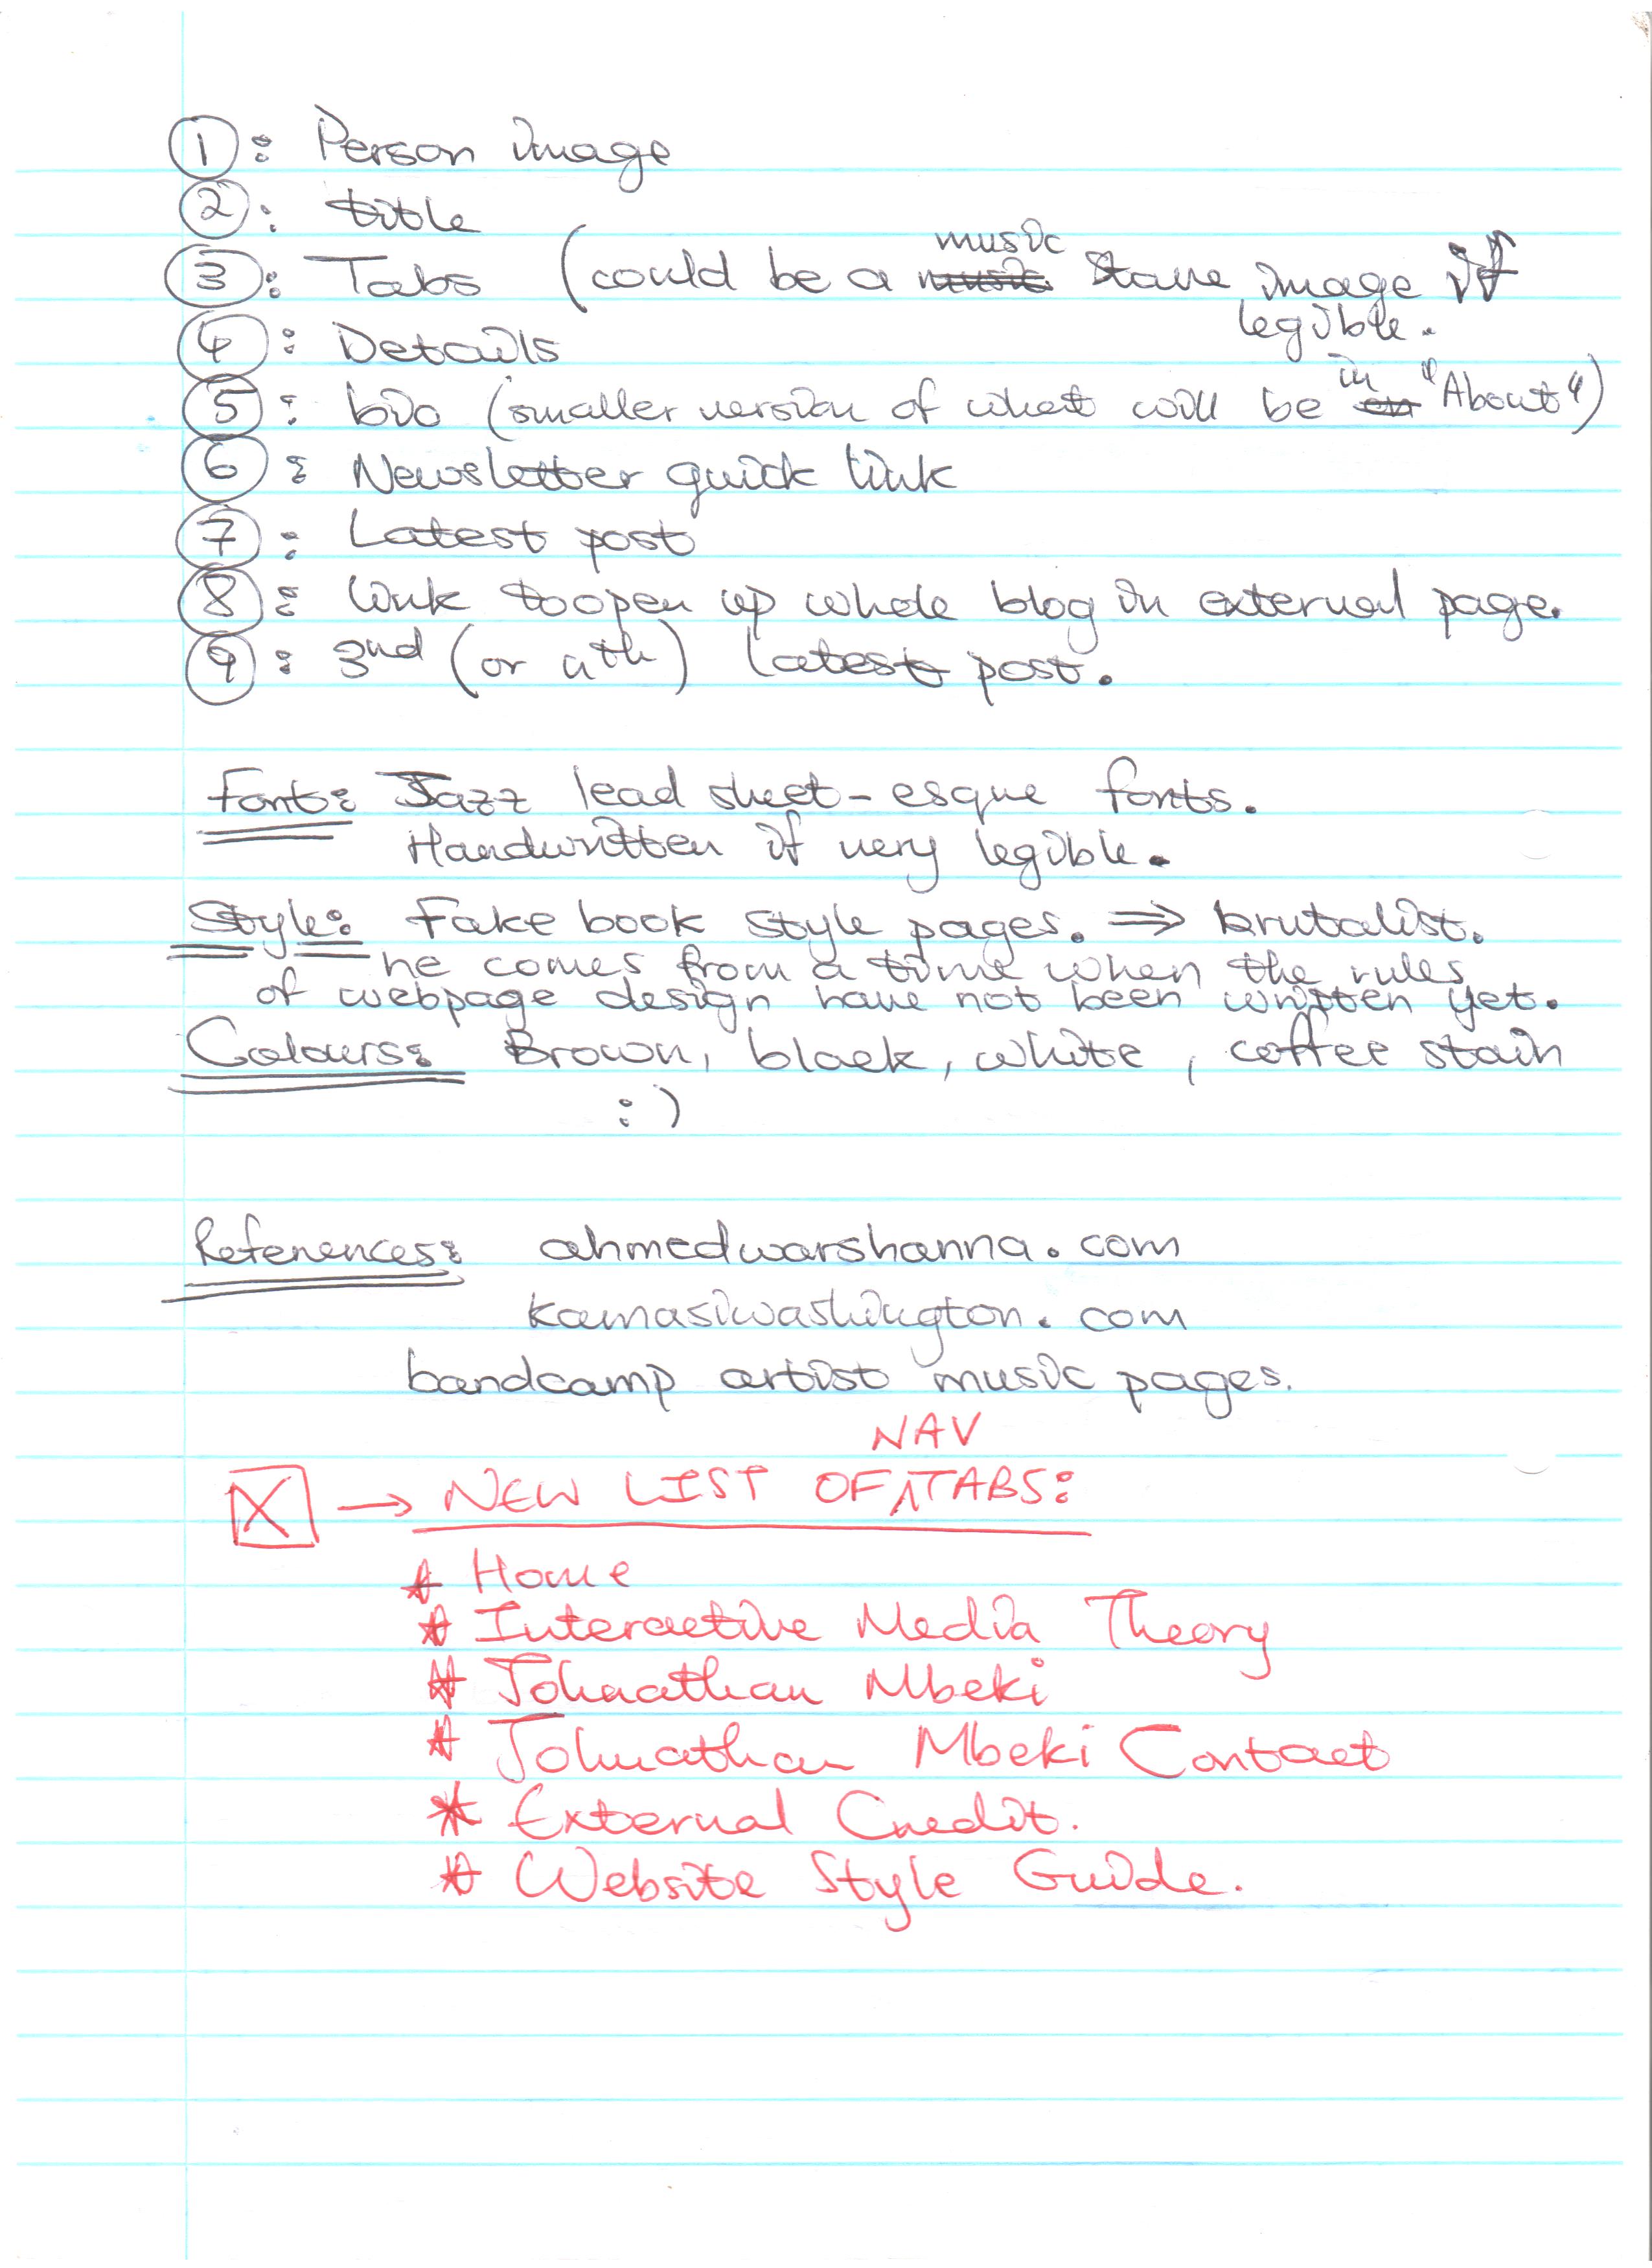 1: Person image
2: title
3: Tabs (could be a music stave image if legible.
4: Details
5: bio (smaller version of what will be in "About")
6: Newsletter quick link
7: Latest post
8: link to open up whole blog in external page.
9: 3nd (or nth) latest post.
Font: Jazz lead sheet-esque fonts.
Handwritten if very legible.
Style: Fake book style pages. ⇒ brutalist.
he comes from a time when the rules
of webpage design have not been written yet.
Colours: Brown, black, white, coffee stain
:)
References: ahmedwarshanna.com
kamasiwashington.com
bandcamp artist music pages.
X → NEW LIST OF NAV TABS:
* Home
* Interactive Media Theory
* Johnathan Mbeki
* Johnathan Mbeki Contact
* External Credit.
* Website Style Guide.